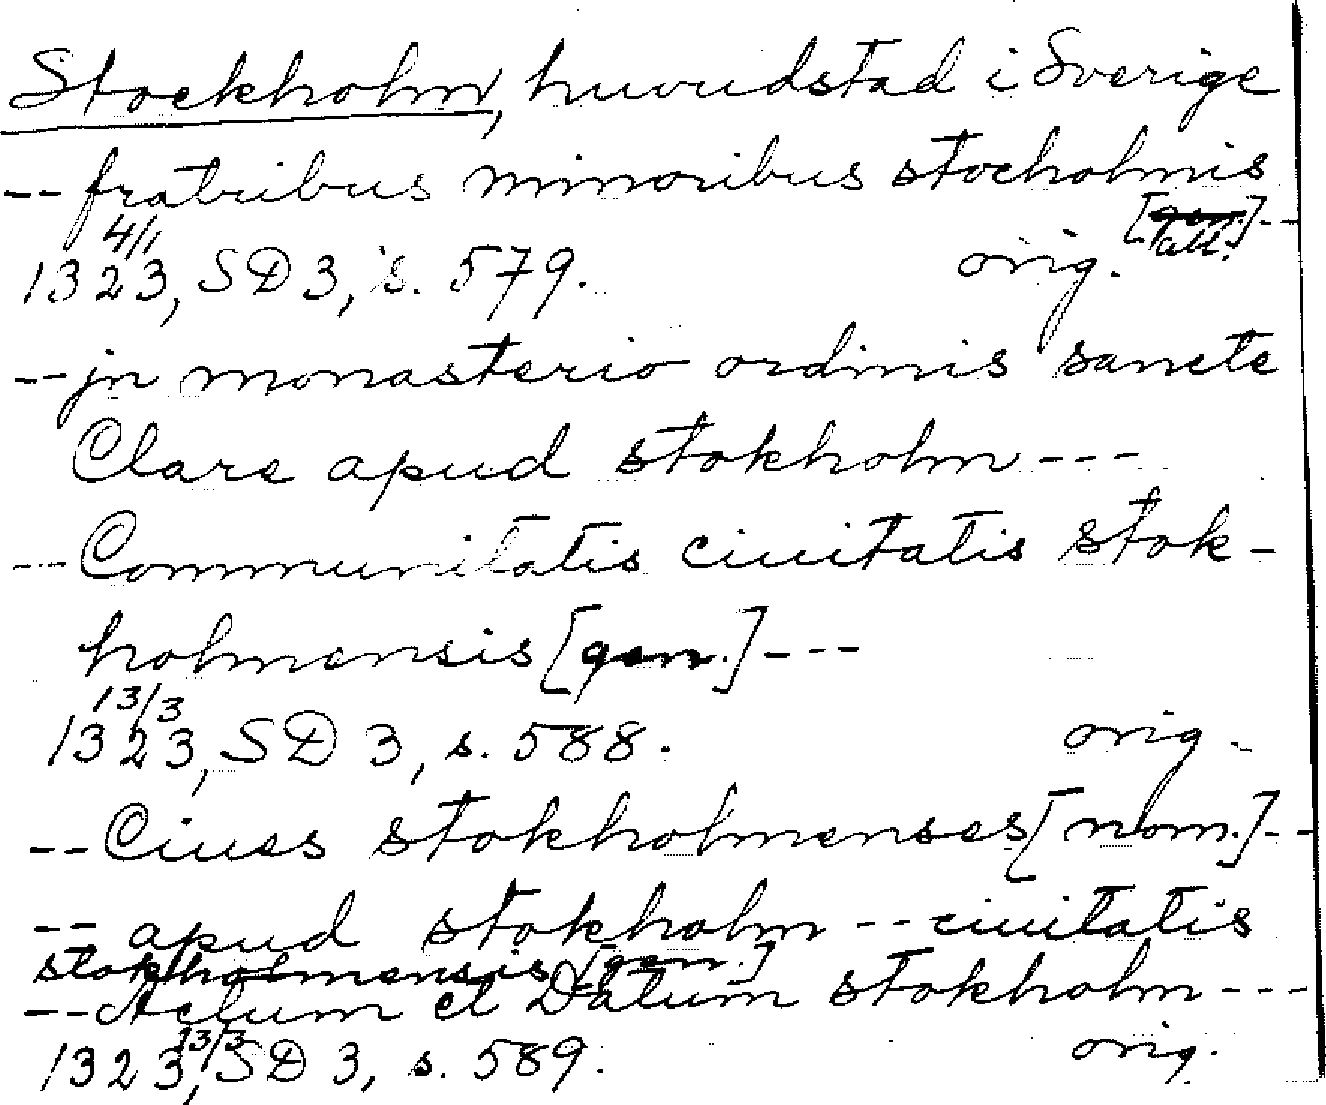 Stockholm, huvudstad i Sverige
-- fratribus minoribus stocholmis
[abl.] --
4/1
1323, SD 3, s. 579. orig.
-- jn monasterio ordinis sancte
Clare apud stokholm ---
-- Communitatis ciuitatis stok-
holmensis [gen.] ---
13/3
1323, SD 3, s. 588. orig.
-- Ciues stokholmenses [nom.] --
-- apud stokholm -- ciuitatis
stokholmensis [gen.]
-- Actum et Datum stokholm ---
13/3
1323, SD 3, s. 589. orig.